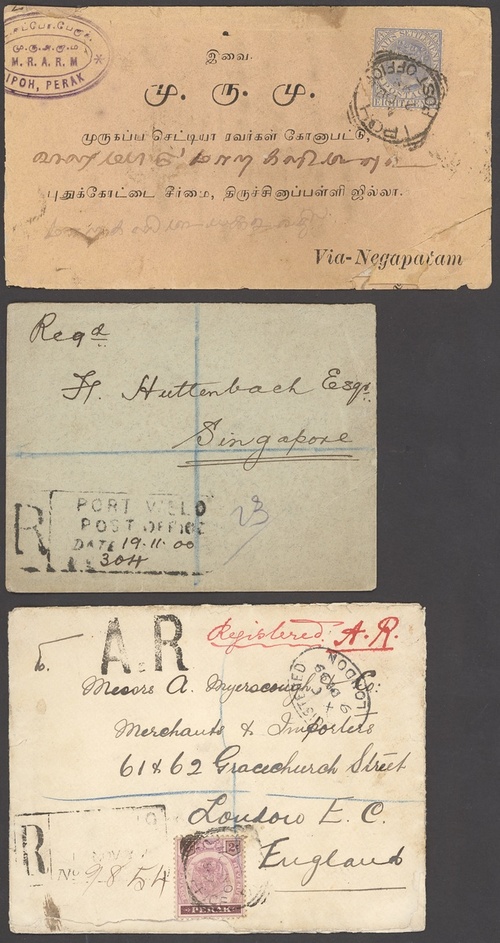 மு. ரு. அ. ரு. ம
M. R. A. R. M
IPOH, PERAK
இவை.
மு. ரு. மு.
முருகப்ப செட்டியா ரவர்கள் கோனபட்டு,
புதுக்கோட்டை சீர்மை, திருச்சினாப்பள்ளி ஜில்லா.
Via-Negapatam
POST OFFICE
IPOH
Regd
H. Huttenbach Esqr.
Singapore
R
PORT WELD
POST OFFICE
DATE 19.11.00
304
A.R
Registered. A.R.
Messrs A. Myerscough & Co:
Merchants & Importers
61 & 62 Gracechurch Street
London E. C.
England
REGISTERED
LONDON
R
No 9854
PERAK